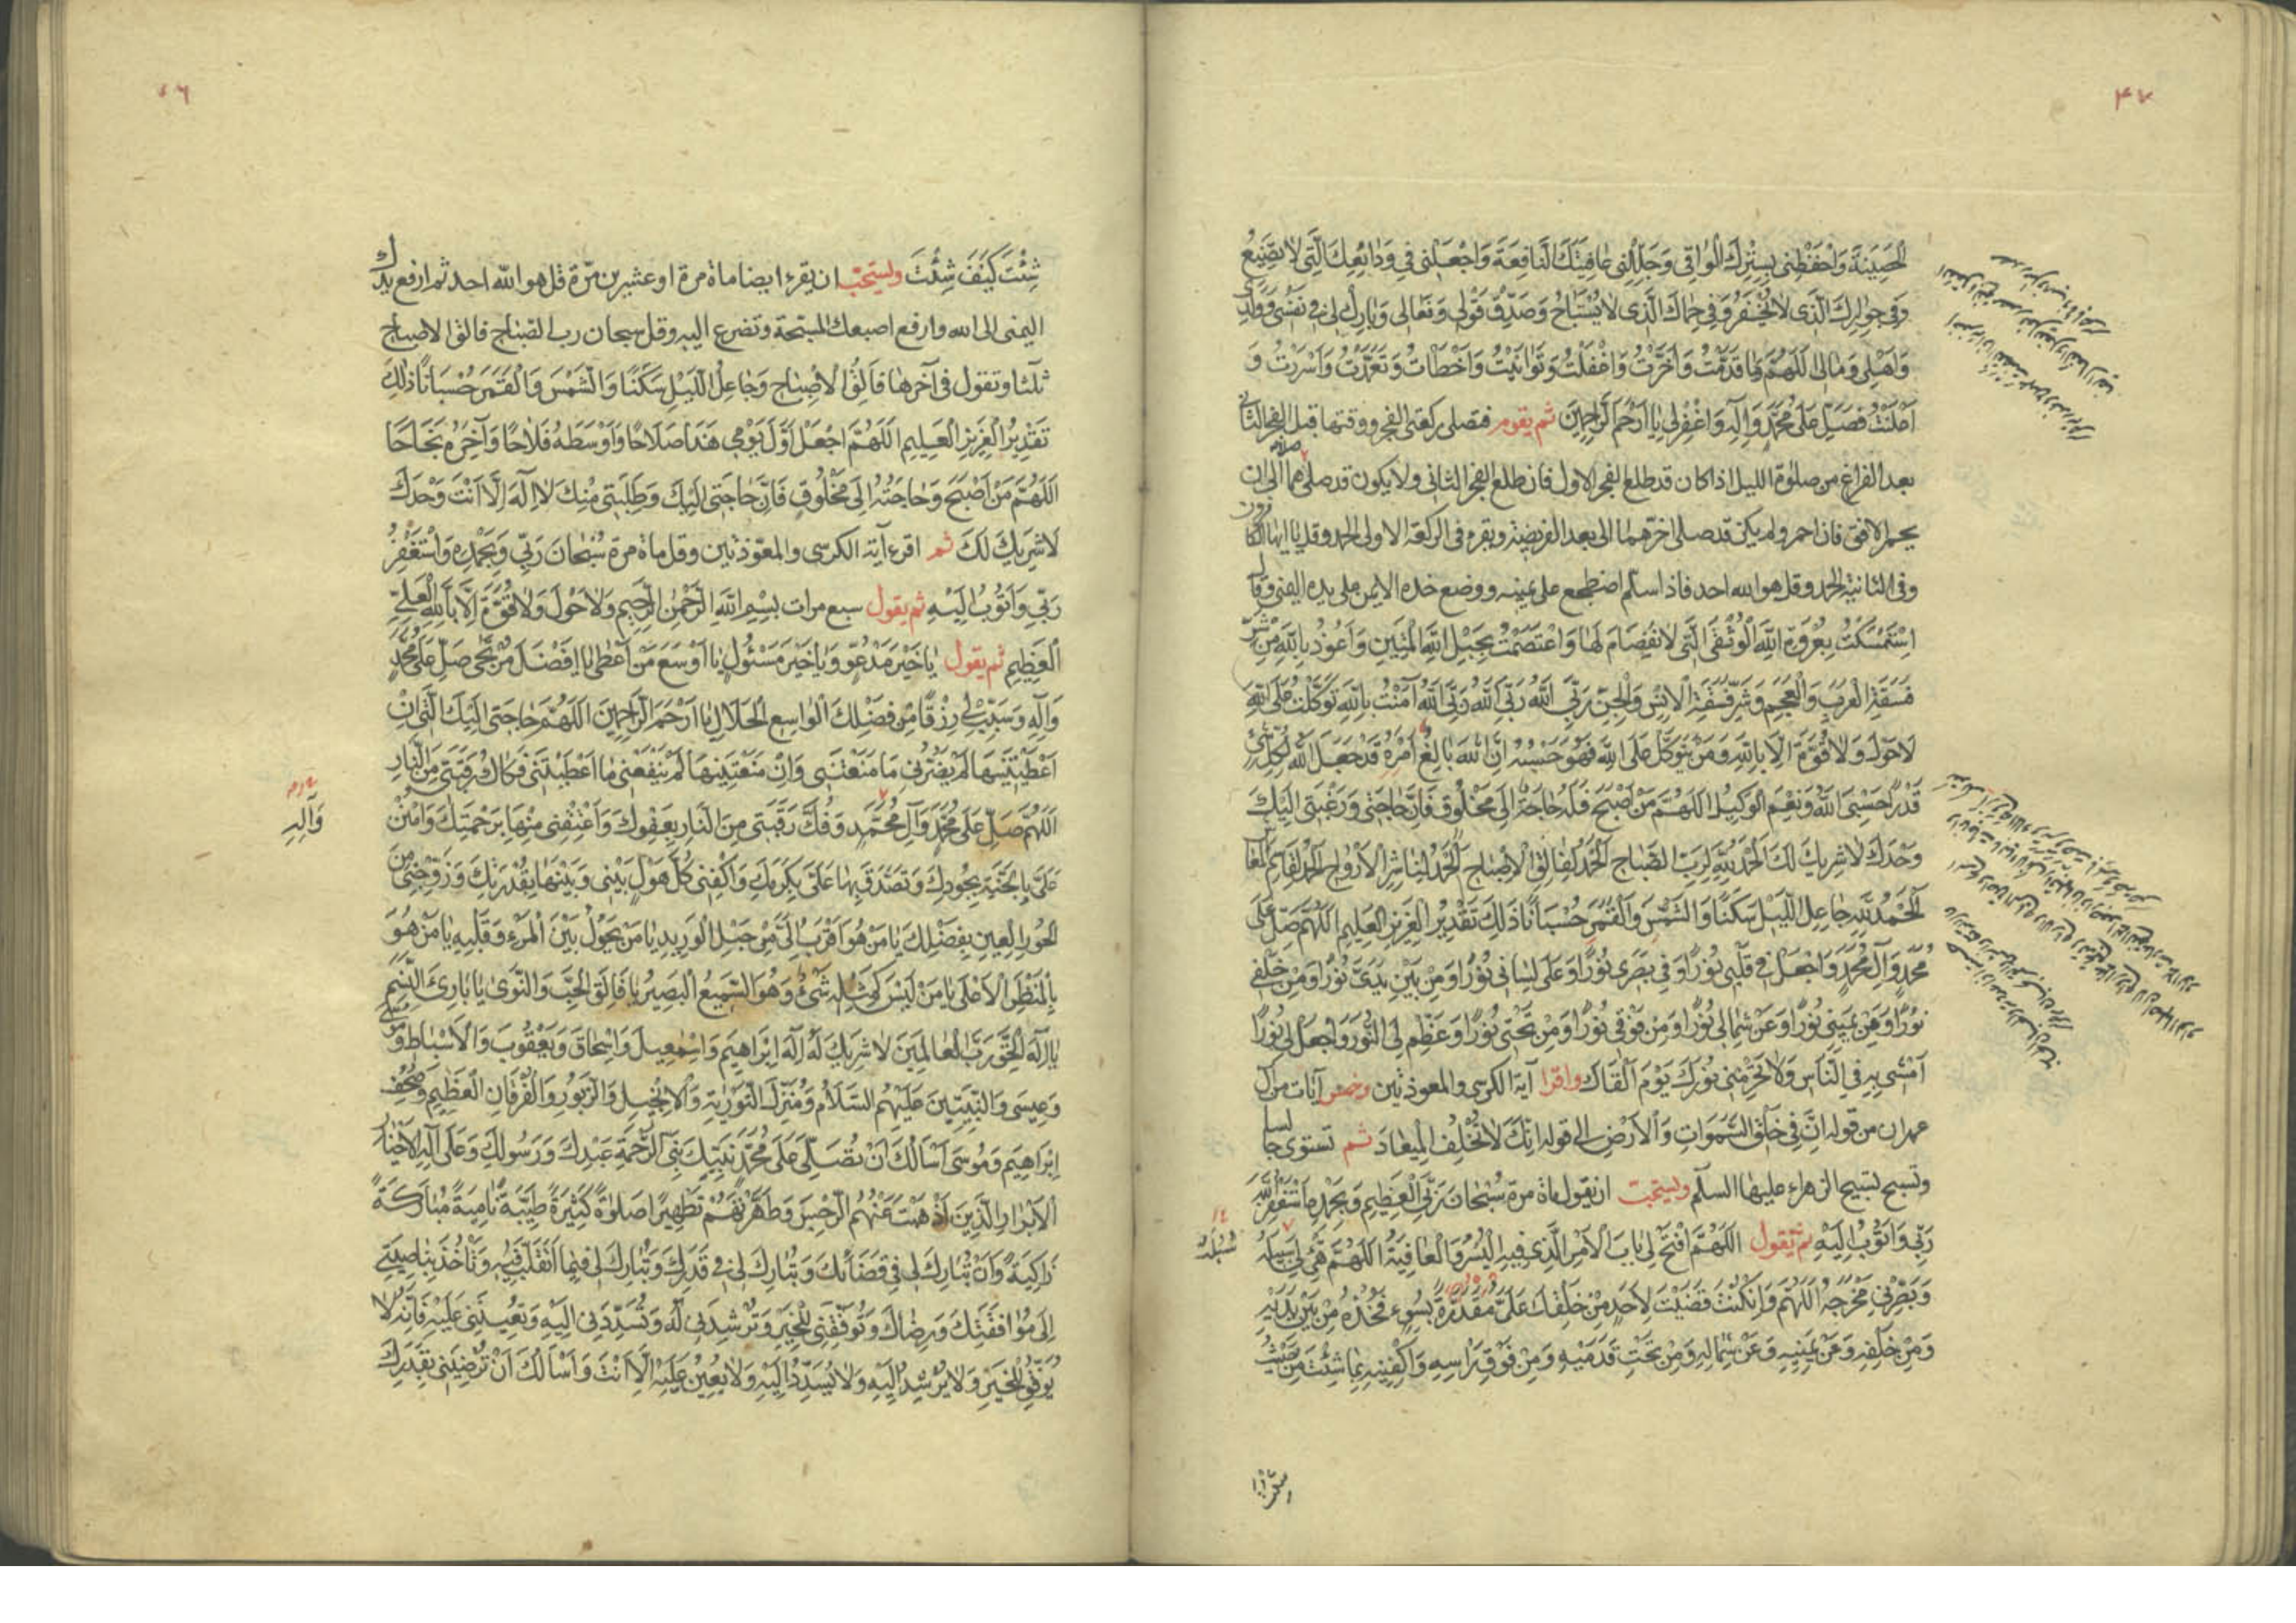 ۴۷
الْحَصِينَةَ وَاحْفَظْنِي بِسِتْرِكَ الْوَاقِي وَجَلِّلْنِي عَافِيَتَكَ النَّافِعَةَ وَاجْعَلْنِي فِي وَدَائِعِكَ الَّتِي لَا تَضِيعُ
وَفِي جِوَارِكَ الَّذِي لَا يُخْفَرُ وَفِي حِمَاكَ الَّذِي لَا يُسْتَبَاحُ وَصَدِّقْ قَوْلِي وَفَعَالِي وَبَارِكْ لِي فِي نَفْسِي وَوَلَدِي
وَأَهْلِي وَمَالِي اللَّهُمَّ مَا قَدَّمْتُ وَأَخَّرْتُ وَأَغْفَلْتُ وَتَوَانَيْتُ وَأَخْطَأْتُ وَتَعَمَّدْتُ وَأَسْرَرْتُ وَ
أَعْلَنْتُ فَصَلِّ عَلَى مُحَمَّدٍ وَآلِهِ وَاغْفِرْ لِي يَا أَرْحَمَ الرَّاحِمِينَ ثم يقوم فتصلى ركعتى الفجر ووقتهما قبل الفجر الثانى
بعد الفراغ من صلوة الليل اذا كان قد طلع الفجر الاول فان طلع الفجر الثانى ولا يكون قد صلى صلاهما الى ان
يحمر الافق فان احمر ولم يكن قد صلى اخرهما الى بعد الفريضة ويقرء فى الركعة الاولى الحمد وقل يا ايها الكافرون
وفى الثانية الحمد وقل هو الله احد فاذا سلم اضطجع على يمينه ووضع خده الايمن على يده اليمنى وقال
اسْتَمْسَكْتُ بِعُرْوَةِ اللَّهِ الْوُثْقَى الَّتِي لَا انْفِصَامَ لَهَا وَاعْتَصَمْتُ بِحَبْلِ اللَّهِ الْمَتِينِ وَأَعُوذُ بِاللَّهِ مِنْ شَرِّ
فَسَقَةِ الْعَرَبِ وَالْعَجَمِ وَشَرِّ فَسَقَةِ الْإِنْسِ وَالْجِنِّ رَبِّيَ اللَّهُ رَبِّيَ اللَّهُ رَبِّيَ اللَّهُ آمَنْتُ بِاللَّهِ تَوَكَّلْتُ عَلَى اللَّهِ
لَا حَوْلَ وَلَا قُوَّةَ إِلَّا بِاللَّهِ وَمَنْ يَتَوَكَّلْ عَلَى اللَّهِ فَهُوَ حَسْبُهُ إِنَّ اللَّهَ بَالِغُ أَمْرِهِ قَدْ جَعَلَ اللَّهُ لِكُلِّ شَيْءٍ
قَدْرًا حَسْبِيَ اللَّهُ وَنِعْمَ الْوَكِيلُ اللَّهُمَّ مَنْ أَصْبَحَ فَلَهُ حَاجَةٌ إِلَى مَخْلُوقٍ فَإِنَّ حَاجَتِي وَرَغْبَتِي إِلَيْكَ
وَحْدَكَ لَا شَرِيكَ لَكَ الْحَمْدُ لِلَّهِ لِرَبِّ الصَّبَاحِ الْحَمْدُ لِفَالِقِ الْإِصْبَاحِ الْحَمْدُ لِنَاشِرِ الْأَرْوَاحِ الْحَمْدُ لِقَاسِمِ الْمَعَاشِ
الْحَمْدُ لِلَّهِ جَاعِلِ اللَّيْلِ سَكَنًا وَالشَّمْسَ وَالْقَمَرَ حُسْبَانًا ذَلِكَ تَقْدِيرُ الْعَزِيزِ الْعَلِيمِ اللَّهُمَّ صَلِّ عَلَى
مُحَمَّدٍ وَآلِ مُحَمَّدٍ وَاجْعَلْ فِي قَلْبِي نُورًا وَفِي بَصَرِي نُورًا وَعَلَى لِسَانِي نُورًا وَمِنْ بَيْنِ يَدَيَّ نُورًا وَمِنْ خَلْفِي
نُورًا وَعَنْ يَمِينِي نُورًا وَعَنْ شِمَالِي نُورًا وَمِنْ فَوْقِي نُورًا وَمِنْ تَحْتِي نُورًا وَعَظِّمْ لِيَ النُّورَ وَاجْعَلْ لِي نُورًا
أَمْشِي بِهِ فِي النَّاسِ وَلَا تَحْرِمْنِي نُورَكَ يَوْمَ أَلْقَاكَ واقرا آية الكرسى والمعوذتين وخمس آيات من آل
عمران من قوله إِنَّ فِي خَلْقِ السَّمَوَاتِ وَالْأَرْضِ الى قوله إِنَّكَ لَا تُخْلِفُ الْمِيعَادَ ثم تستوى جالسا
وتسبح تسبيح الزهراء عليها السلام ويستحب ان يقول ماة مرة سُبْحَانَ رَبِّيَ الْعَظِيمِ وَبِحَمْدِهِ أَسْتَغْفِرُ اللَّهَ
رَبِّي وَأَتُوبُ إِلَيْهِ ثم يقول اللَّهُمَّ افْتَحْ لِي بَابَ الْأَمْرِ الَّذِي فِيهِ الْيُسْرُ وَالْعَافِيَةُ اللَّهُمَّ هَيِّئْ لِي سَبِيلَهُ
وَبَصِّرْنِي مَخْرَجَهُ اللَّهُمَّ وَإِنْ كُنْتَ قَضَيْتَ لِأَحَدٍ مِنْ خَلْقِكَ عَلَيَّ مَقْدُرَةً بِسُوءٍ فَخُذْهُ مِنْ بَيْنِ يَدَيْهِ
وَمِنْ خَلْفِهِ وَعَنْ يَمِينِهِ وَعَنْ شِمَالِهِ وَمِنْ تَحْتِ قَدَمَيْهِ وَمِنْ فَوْقِ رَأْسِهِ وَاكْفِنِيهِ بِمَا شِئْتَ مِنْ حَيْثُ
شِئْتَ كَيْفَ شِئْتَ ويستحب ان يقرء ايضا ماة مرة او عشرين مرّة قل هو الله احد ثم ارفع يدك
اليمنى الى الله وارفع اصبعك المسبحة وتضرع اليه وقل سبحان رب الصباح فالق الاصباح
ثلثا وتقول فى آخرها فَالِقُ الْإِصْبَاحِ وَجَاعِلُ اللَّيْلِ سَكَنًا وَالشَّمْسَ وَالْقَمَرَ حُسْبَانًا ذَلِكَ
تَقْدِيرُ الْعَزِيزِ الْعَلِيمِ اللَّهُمَّ اجْعَلْ أَوَّلَ يَوْمِي هَذَا صَلَاحًا وَأَوْسَطَهُ فَلَاحًا وَآخِرَهُ نَجَاحًا
اللَّهُمَّ مَنْ أَصْبَحَ وَحَاجَتُهُ إِلَى مَخْلُوقٍ فَإِنَّ حَاجَتِي إِلَيْكَ وَطَلِبَتِي مِنْكَ لَا إِلَهَ إِلَّا أَنْتَ وَحْدَكَ
لَا شَرِيكَ لَكَ ثم اقرء آية الكرسى والمعوّذتين وقل ماة مرة سُبْحَانَ رَبِّي وَبِحَمْدِهِ وَأَسْتَغْفِرُ
رَبِّي وَأَتُوبُ إِلَيْهِ ثم يقول سبع مرات بِسْمِ اللَّهِ الرَّحْمَنِ الرَّحِيمِ وَلَا حَوْلَ وَلَا قُوَّةَ إِلَّا بِاللَّهِ الْعَلِيِّ
الْعَظِيمِ ثم يقول يَا خَيْرَ مَدْعُوٍّ وَيَا خَيْرَ مَسْئُولٍ يَا أَوْسَعَ مَنْ أَعْطَى يَا أَفْضَلَ مُرْتَجًى صَلِّ عَلَى مُحَمَّدٍ
وَآلِهِ وَسَبِّبْ لِي رِزْقًا مِنْ فَضْلِكَ الْوَاسِعِ الْحَلَالِ يَا أَرْحَمَ الرَّاحِمِينَ اللَّهُمَّ حَاجَتِي إِلَيْكَ الَّتِي إِنْ
أَعْطَيْتَنِيهَا لَمْ يَضُرَّنِي مَا مَنَعْتَنِي وَإِنْ مَنَعْتَنِيهَا لَمْ يَنْفَعْنِي مَا أَعْطَيْتَنِي فَكَاكُ رَقَبَتِي مِنَ النَّارِ
اللَّهُمَّ صَلِّ عَلَى مُحَمَّدٍ وَآلِ مُحَمَّدٍ وَفُكَّ رَقَبَتِي مِنَ النَّارِ بِعَفْوِكَ وَأَعْتِقْنِي مِنْهَا بِرَحْمَتِكَ وَامْنُنْ
وَآلِهِ
عَلَيَّ بِالْجَنَّةِ بِجُودِكَ وَتَصَدَّقْ بِهَا عَلَيَّ بِكَرَمِكَ وَاكْفِنِي كُلَّ هَوْلٍ بَيْنِي وَبَيْنَهَا بِقُدْرَتِكَ وَزَوِّجْنِي مِنَ
الْحُورِ الْعِينِ بِفَضْلِكَ يَا مَنْ هُوَ أَقْرَبُ إِلَيَّ مِنْ حَبْلِ الْوَرِيدِ يَا مَنْ يَحُولُ بَيْنَ الْمَرْءِ وَقَلْبِهِ يَا مَنْ هُوَ
بِالْمَنْظَرِ الْأَعْلَى يَا مَنْ لَيْسَ كَمِثْلِهِ شَيْءٌ وَهُوَ السَّمِيعُ الْبَصِيرُ يَا فَالِقَ الْحَبِّ وَالنَّوَى يَا بَارِئَ النَّسَمِ
يَا إِلَهَ الْخَلْقِ رَبَّ الْعَالَمِينَ لَا شَرِيكَ لَهُ إِلَهَ إِبْرَاهِيمَ وَإِسْمَعِيلَ وَإِسْحَاقَ وَيَعْقُوبَ وَالْأَسْبَاطِ وَمُوسَى
وَعِيسَى وَالنَّبِيِّينَ عَلَيْهِمُ السَّلَامُ وَمُنْزِلَ التَّوْرَيةِ وَالْإِنْجِيلِ وَالزَّبُورِ وَالْفُرْقَانِ الْعَظِيمِ وَصُحُفِ
إِبْرَاهِيمَ وَمُوسَى أَسْأَلُكَ أَنْ تُصَلِّيَ عَلَى مُحَمَّدٍ نَبِيِّكَ نَبِيِّ الرَّحْمَةِ عَبْدِكَ وَرَسُولِكَ وَعَلَى آلِهِ الْأَخْيَارِ
الْأَبْرَارِ الَّذِينَ أَذْهَبْتَ عَنْهُمُ الرِّجْسَ وَطَهَّرْتَهُمْ تَطْهِيرًا صَلَوةً كَثِيرَةً طَيِّبَةً نَامِيَةً مُبَارَكَةً
زَاكِيَةً وَأَنْ تُبَارِكَ لِي فِي قَضَائِكَ وَتُبَارِكَ لِي فِي قَدَرِكَ وَتُبَارِكَ لِي فِيمَا أَتَقَلَّبُ فِيهِ وَتَأْخُذَ بِنَاصِيَتِي
إِلَى مُوَافَقَتِكَ وَرِضَاكَ وَتُوَفِّقَنِي لِلْخَيْرِ وَتُرْشِدَنِي لَهُ وَتُسَدِّدَنِي إِلَيْهِ وَتُعِينَنِي عَلَيْهِ فَإِنَّهُ لَا
يُوَفِّقُ لِلْخَيْرِ وَلَا يُرْشِدُ إِلَيْهِ وَلَا يُسَدِّدُ إِلَيْهِ وَلَا يُعِينُ عَلَيْهِ إِلَّا أَنْتَ وَأَسْأَلُكَ أَنْ تُرْضِيَنِي بِقَدَرِكَ